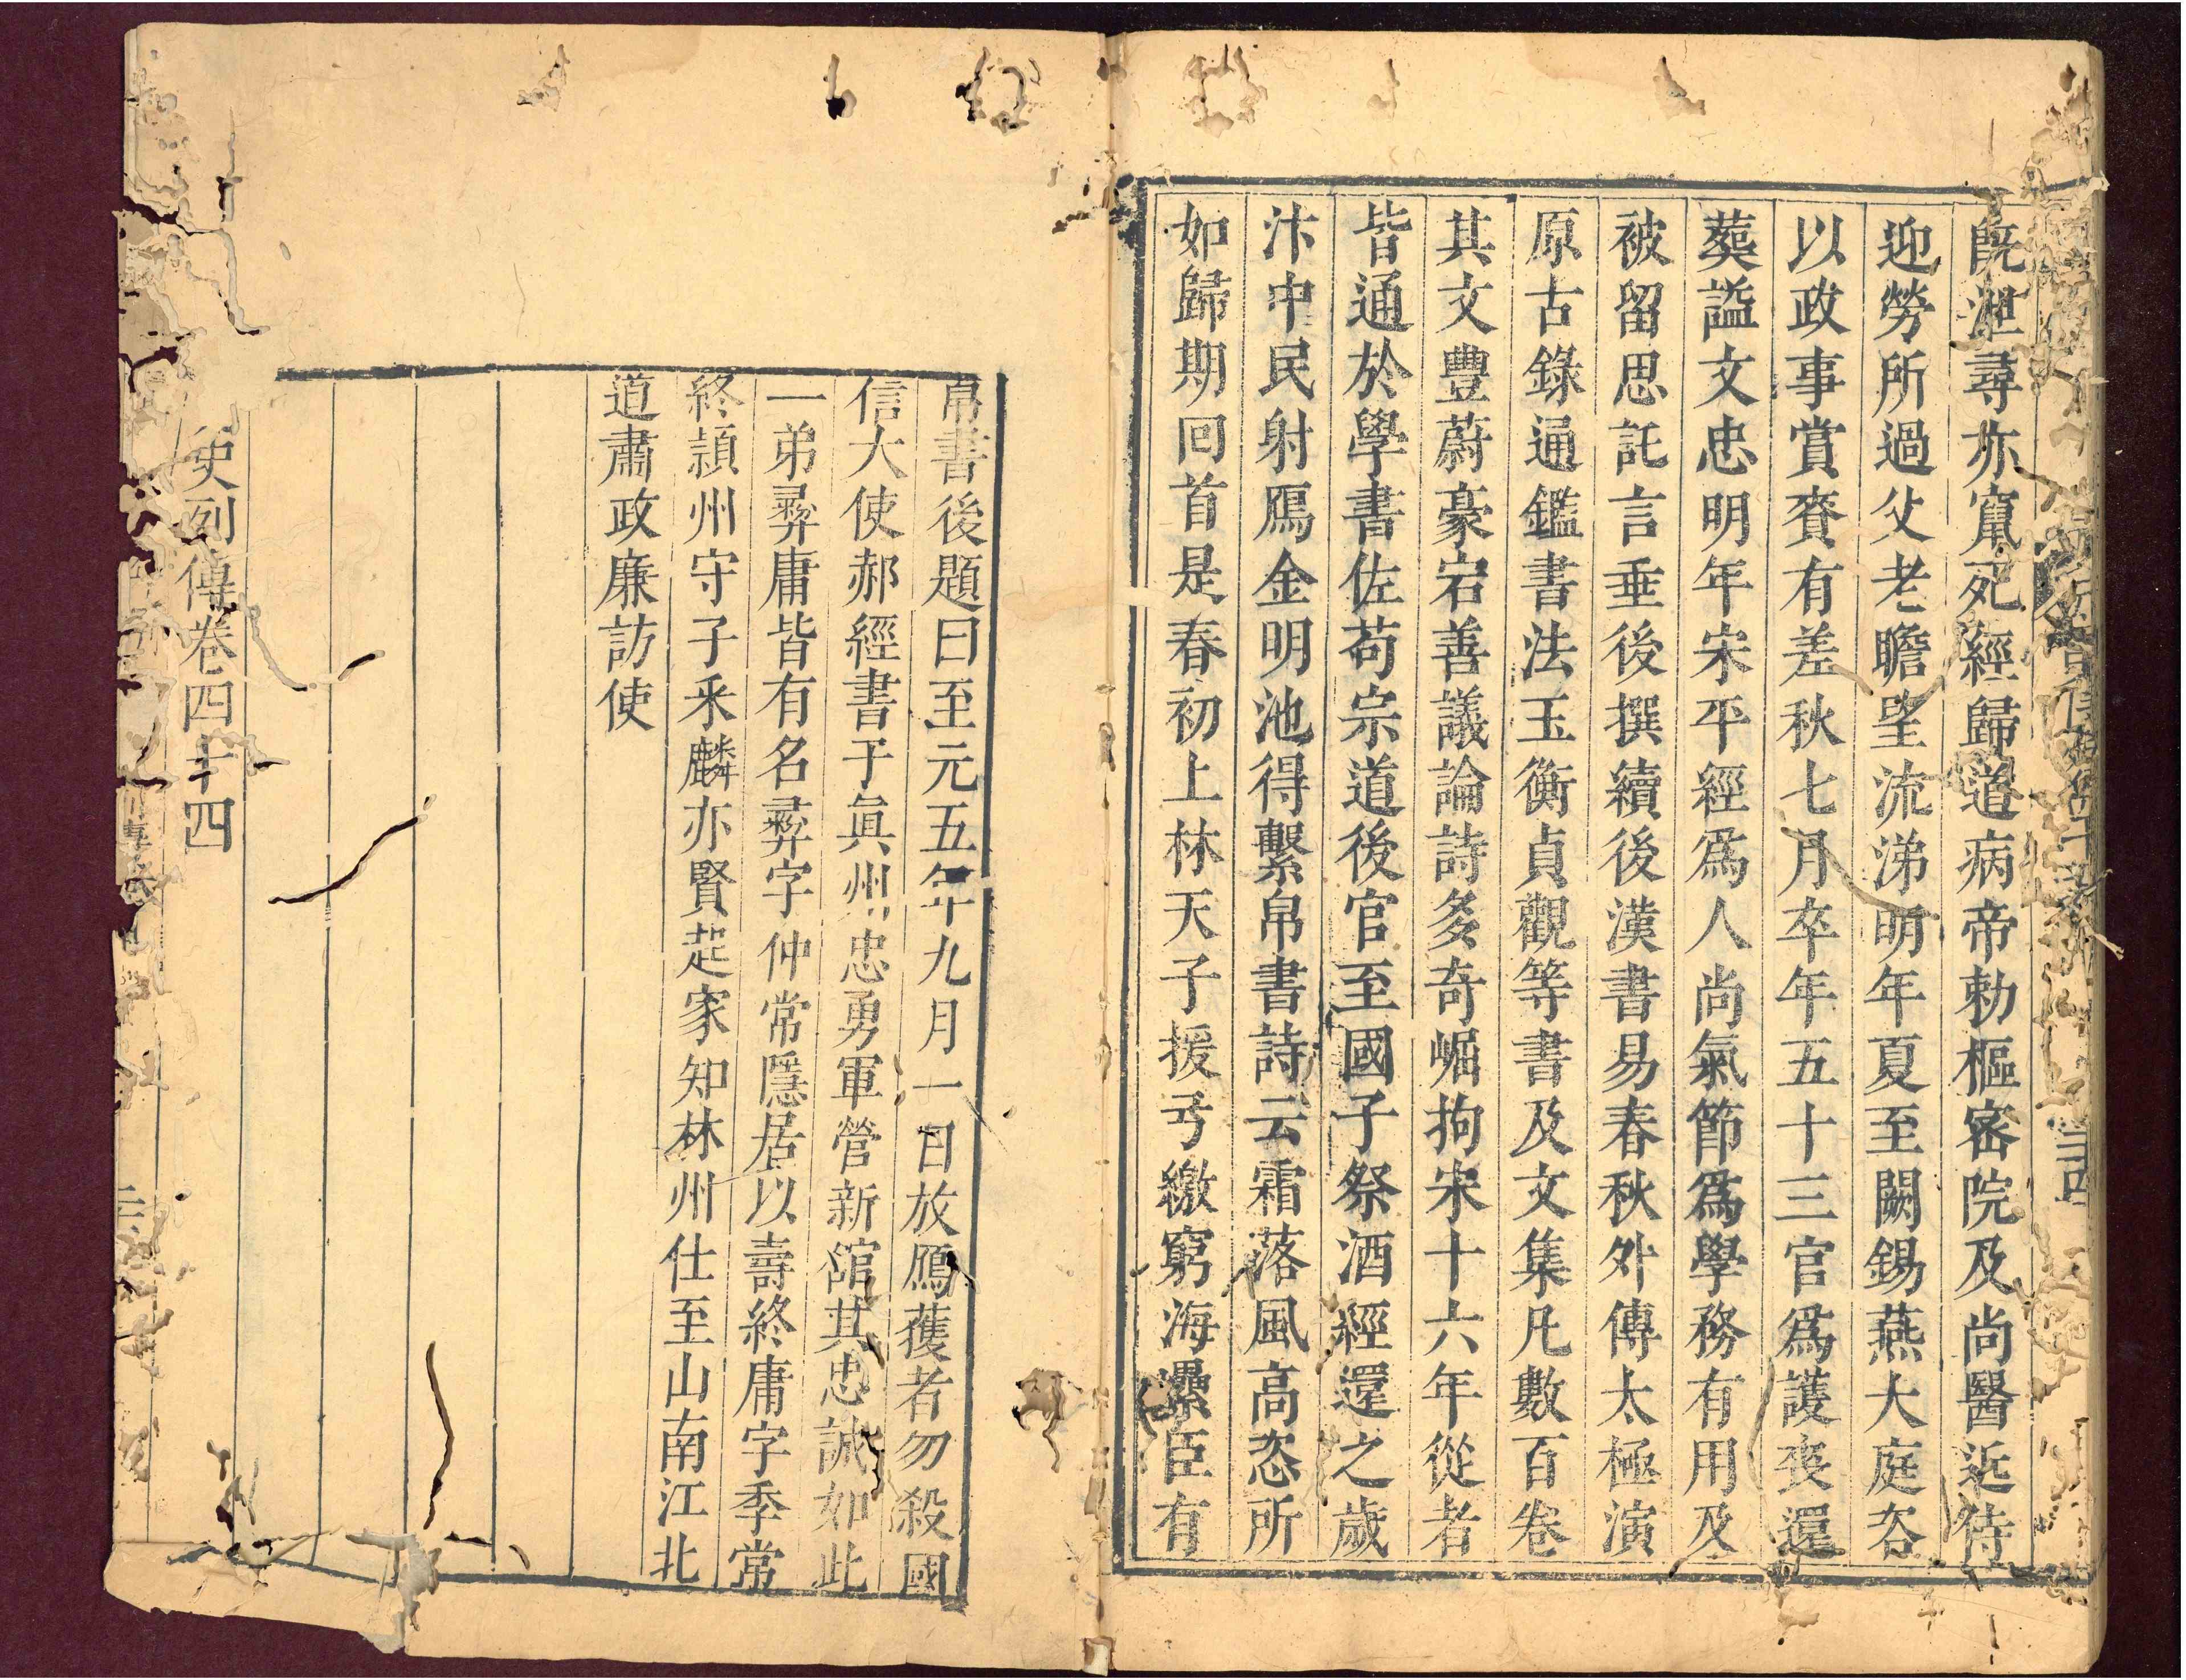 既泄尋亦竄死經歸道病帝勅樞密院及尚醫近侍
迎勞所過父老瞻望流涕明年夏至闕錫燕大庭咨
以政事賞賚有差秋七月卒年五十三官爲護喪還
葬謚文忠明年宋平經爲人尚氣節爲學務有用及
被留思託言垂後撰續後漢書易春秋外傳太極演
原古錄通鑑書法玉衡貞觀等書及文集凡數百卷
其文豐蔚豪宕善議論詩多奇崛拘宋十六年從者
皆通於學書佐苟宗道後官至國子祭酒經還之歲
汴中民射鴈金明池得繫帛書詩云霜落風高恣所
如歸期回首是春初上林天子援弓繳窮海纍臣有
帛書後題曰至元五年九月一日放鴈獲者勿殺國
信大使郝經書于眞州忠勇軍營新館其忠誠如此
一弟彛庸皆有名彛字仲常隱居以壽終庸字季常
終潁州守子采麟亦賢起家知林州仕至山南江北
道肅政廉訪使
史列傳卷四十四